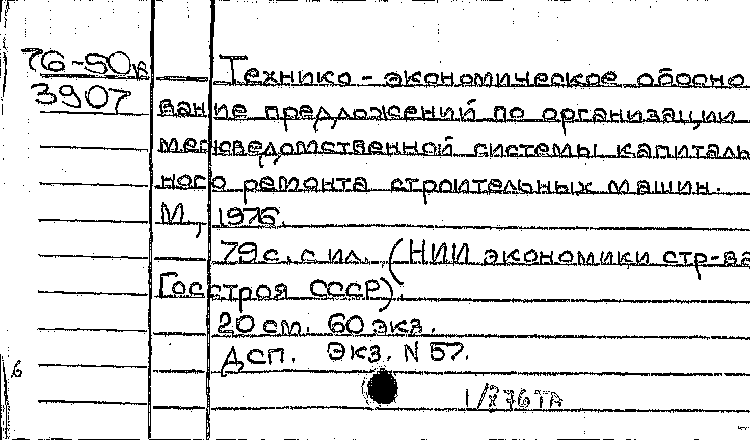 76-50в
3907
Технико-экономическое обосно
вание предложений по организации
межведомственной системы капиталь
ного ремонта строительных машин.
М., 1976.
79 с. с ил. (НИИ экономики стр-ва
Госстроя СССР).
20 см. 60 экз.
ДСП. Экз. N 57.
6